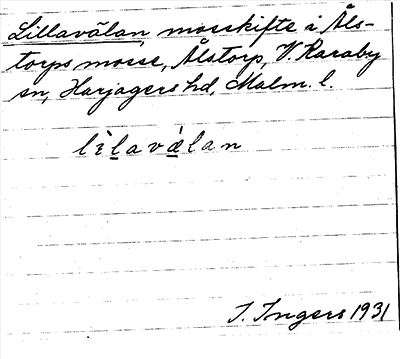 Lillavälan, mosskifte i Åls-
torps mosse, Ålstorp, V. Karaby
sn, Harjagers hd, Malm. l.
lìlavǽlan
I. Ingers 1931